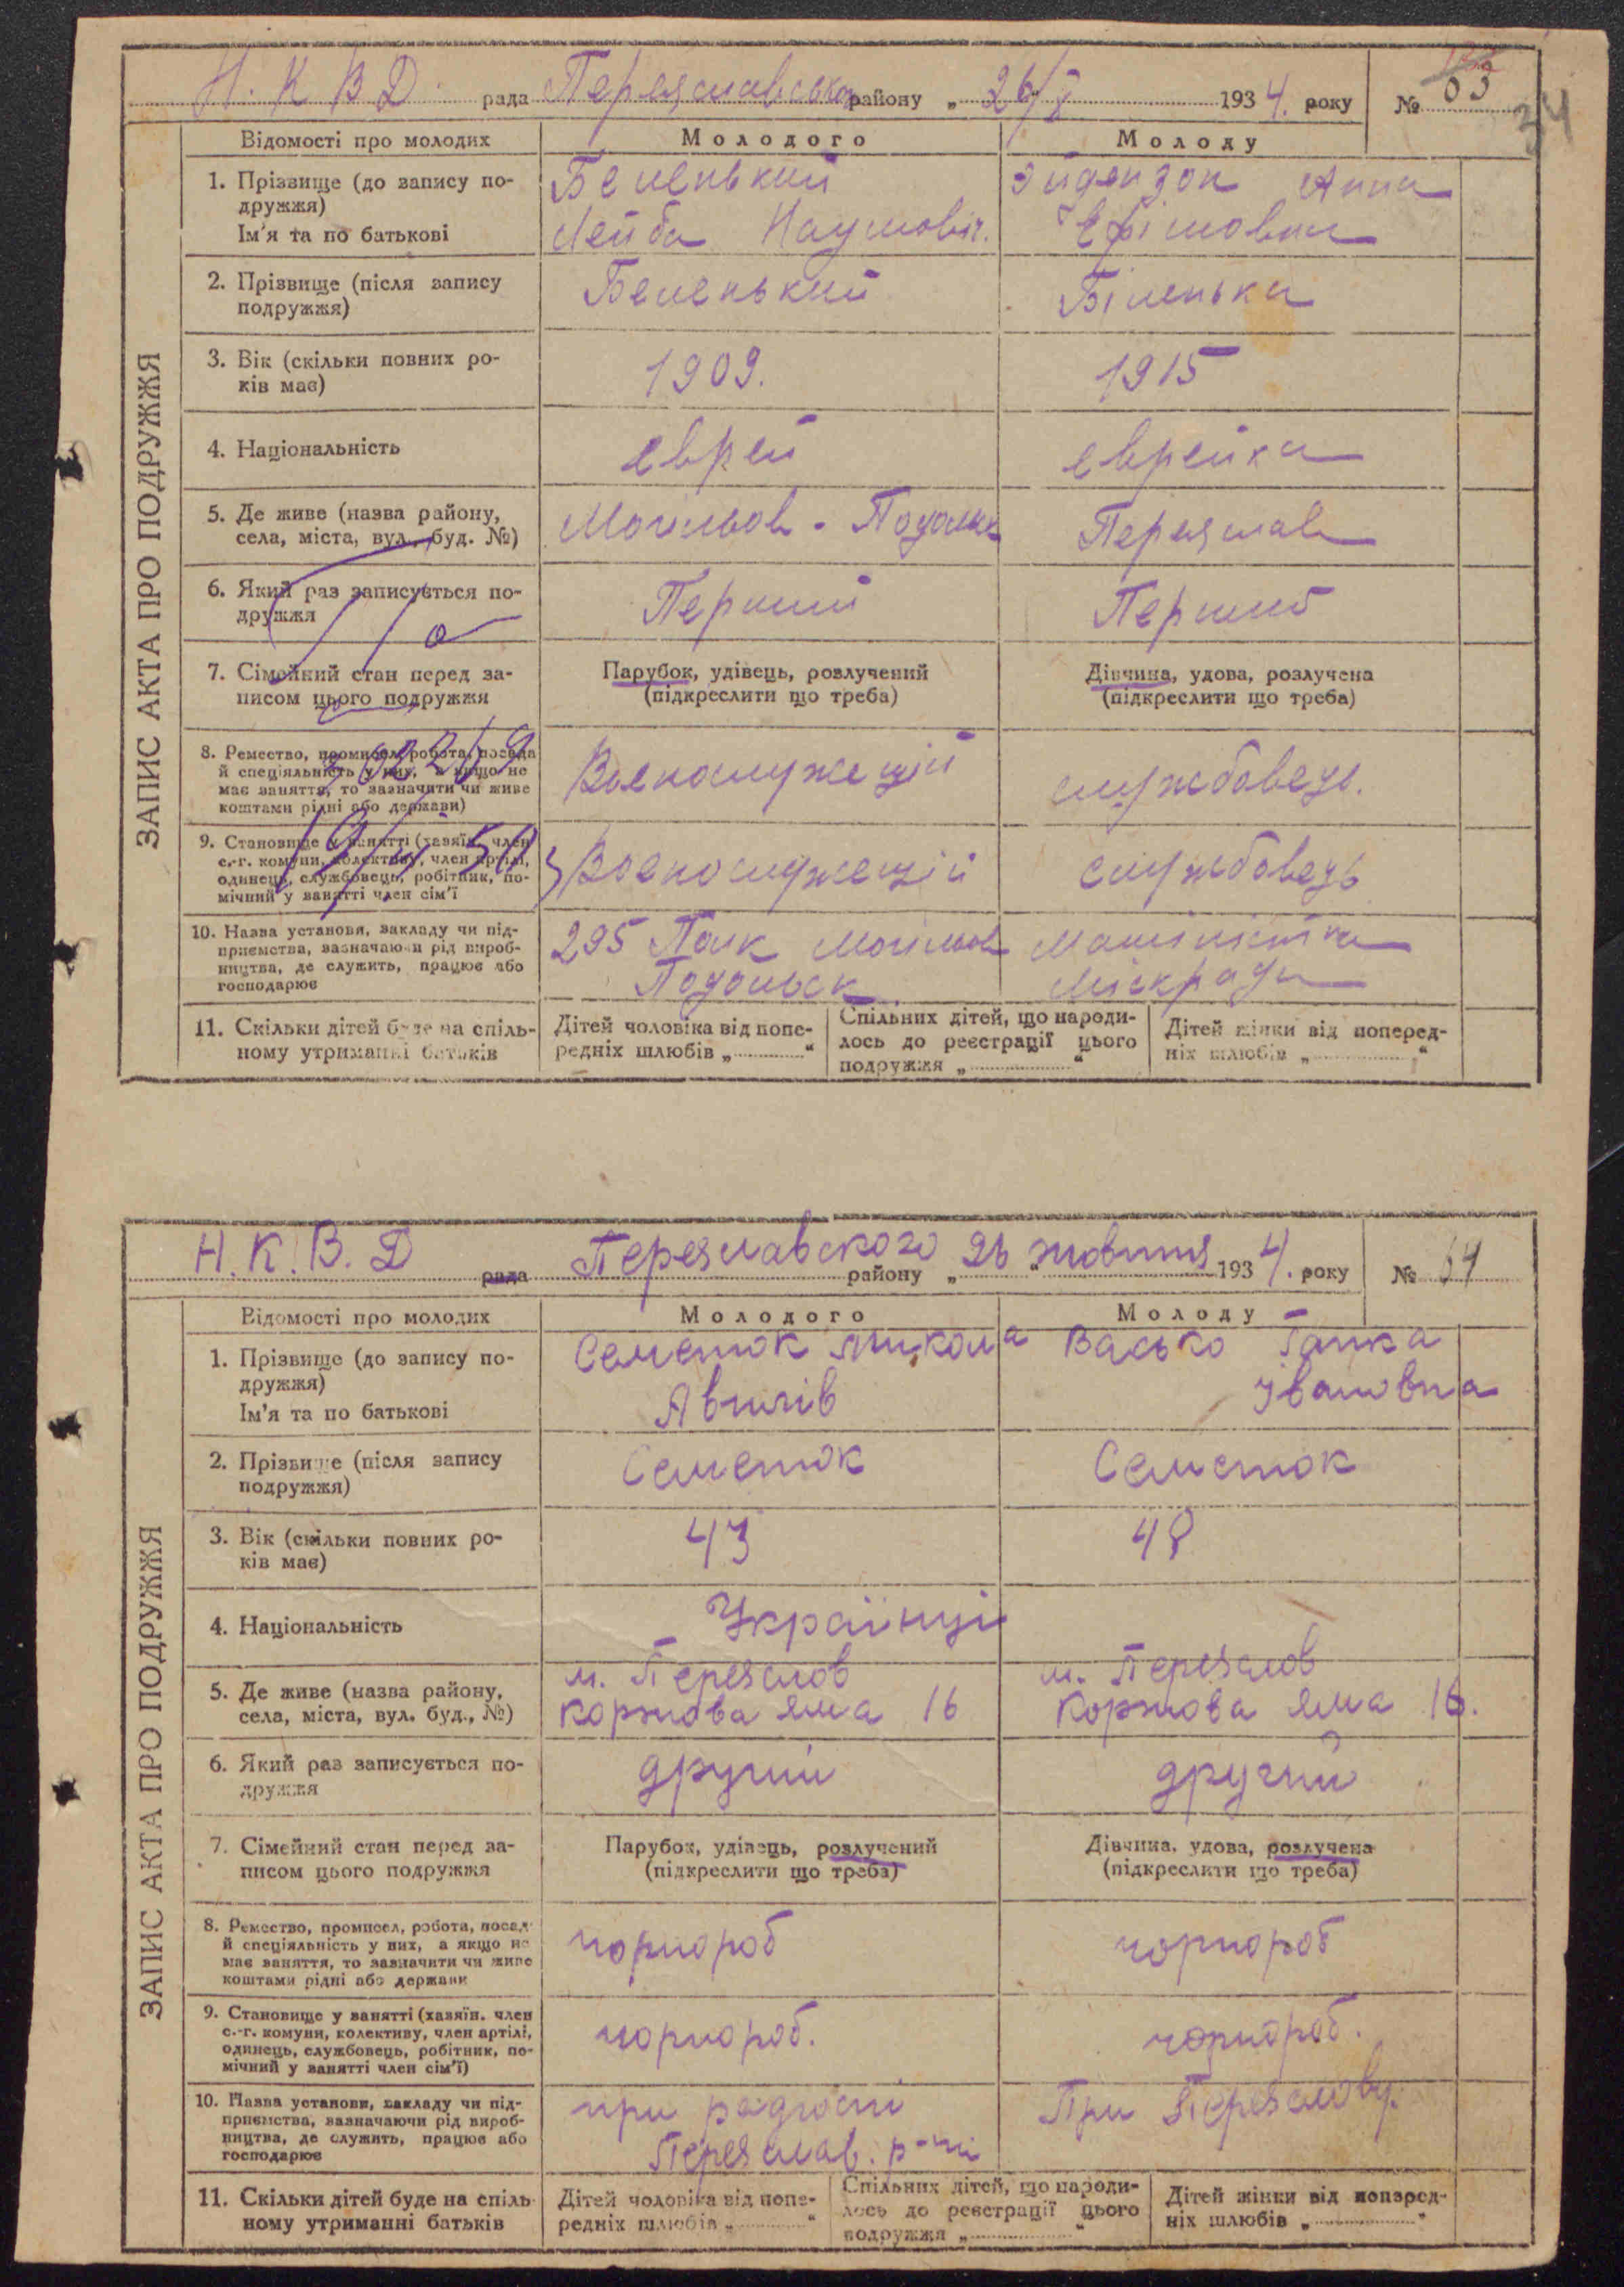 Н. К. В. Д. рада Переяславськ району „ 26/X 1934. року № 63
34
ЗАПИС АКТА ПРО ПОДРУЖЖЯ
Відомості про молодих Молодого Молоду
1. Прізвище (до запису по- Беленький Эйдензон Анна
дружжя)
Ім'я та по батькові Лейба Наумовіч. Ефімовна
2. Прізвище (після запису Беленький Біленька
подружжя)
3. Вік (скільки повних ро- 1909. 1915
ків має)
4. Національність еврей еврейка
5. Де живе (назва району, Могильов - Подольк Переяслав
села, міста, вул., буд. №)
6. Який раз записується по- Перший Перший
дружжя
7. Сімейний стан перед за- Парубок, удівець, розлучений Дівчина, удова, розлучена
писом цього подружжя (підкреслити що треба) (підкреслити що треба)
8. Ремество, промисел, робота, посада Военнослужещій службовець.
й спеціяльність у них, а якщо не
має заняття, то зазначити чи живе
коштами рідні або держави)
9. Становище у занятті (хазяїн, член Военослужещій службовець
с.-г. комуни, колективу, член артілі,
одинець, службовець, робітник, по-
мічний у занятті член сім'ї
10. Назва установи, закладу чи під- 295 Полк Могильов Машиністка
приємства, зазначаючи рід вироб- Подольск Міскради
ництва, де служить, працює або
господарює
11. Скільки дітей буде на спіль- Дітей чоловіка від попе- Спільних дітей, що народи- Дітей жінки від поперед-
ному утриманні батьків редніх шлюбів „ “ лось до реєстрації цього ніх шлюбів „ “
подружжя „ “
Н. К. В. Д рада Переяславского району „ 26 жовтня 1934. року № 64
ЗАПИС АКТА ПРО ПОДРУЖЖЯ
Відомості про молодих Молодого Молоду
1. Прізвище (до запису по- Семенюк Микола Васько Ганка
дружжя)
Ім'я та по батькові Івановна
2. Прізвище (після запису Семенюк Семенюк
подружжя)
3. Вік (скільки повних ро- 43 48
ків має)
4. Національність Українці
5. Де живе (назва району, м. Переяслов м. Переяслов
села, міста, вул. буд., №) Коржова яма 16 Коржова яма 16.
6. Який раз записується по- другий другий
дружжя
7. Сімейний стан перед за- Парубок, удівець, розлучений Дівчина, удова, розлучена
писом цього подружжя (підкреслити що треба) (підкреслити що треба)
8. Ремество, промисел, робота, посад чорнороб чорнороб
й спеціяльність у них, а якщо не
має заняття, то зазначити чи живе
коштами рідні або держави
9. Становище у занятті (хазяїн. член чорнороб. чорнороб.
с.-г. комуни, колективу, член артілі,
одинець, службовець, робітник, по-
мічний у занятті член сім'ї)
10. Назва установи, закладу чи під- при радгоспі При Переяслову.
приємства, зазначаючи рід вироб-
ництва, де служить, працює або Переяслав. р-ні
господарює
11. Скільки дітей буде на спіль- Дітей чоловіка від попе- Спільних дітей, що народи- Дітей жінки від поперед-
ному утриманні батьків редніх шлюбів „ “ лось до реєстрації цього ніх шлюбів „ “
подружжя „ “